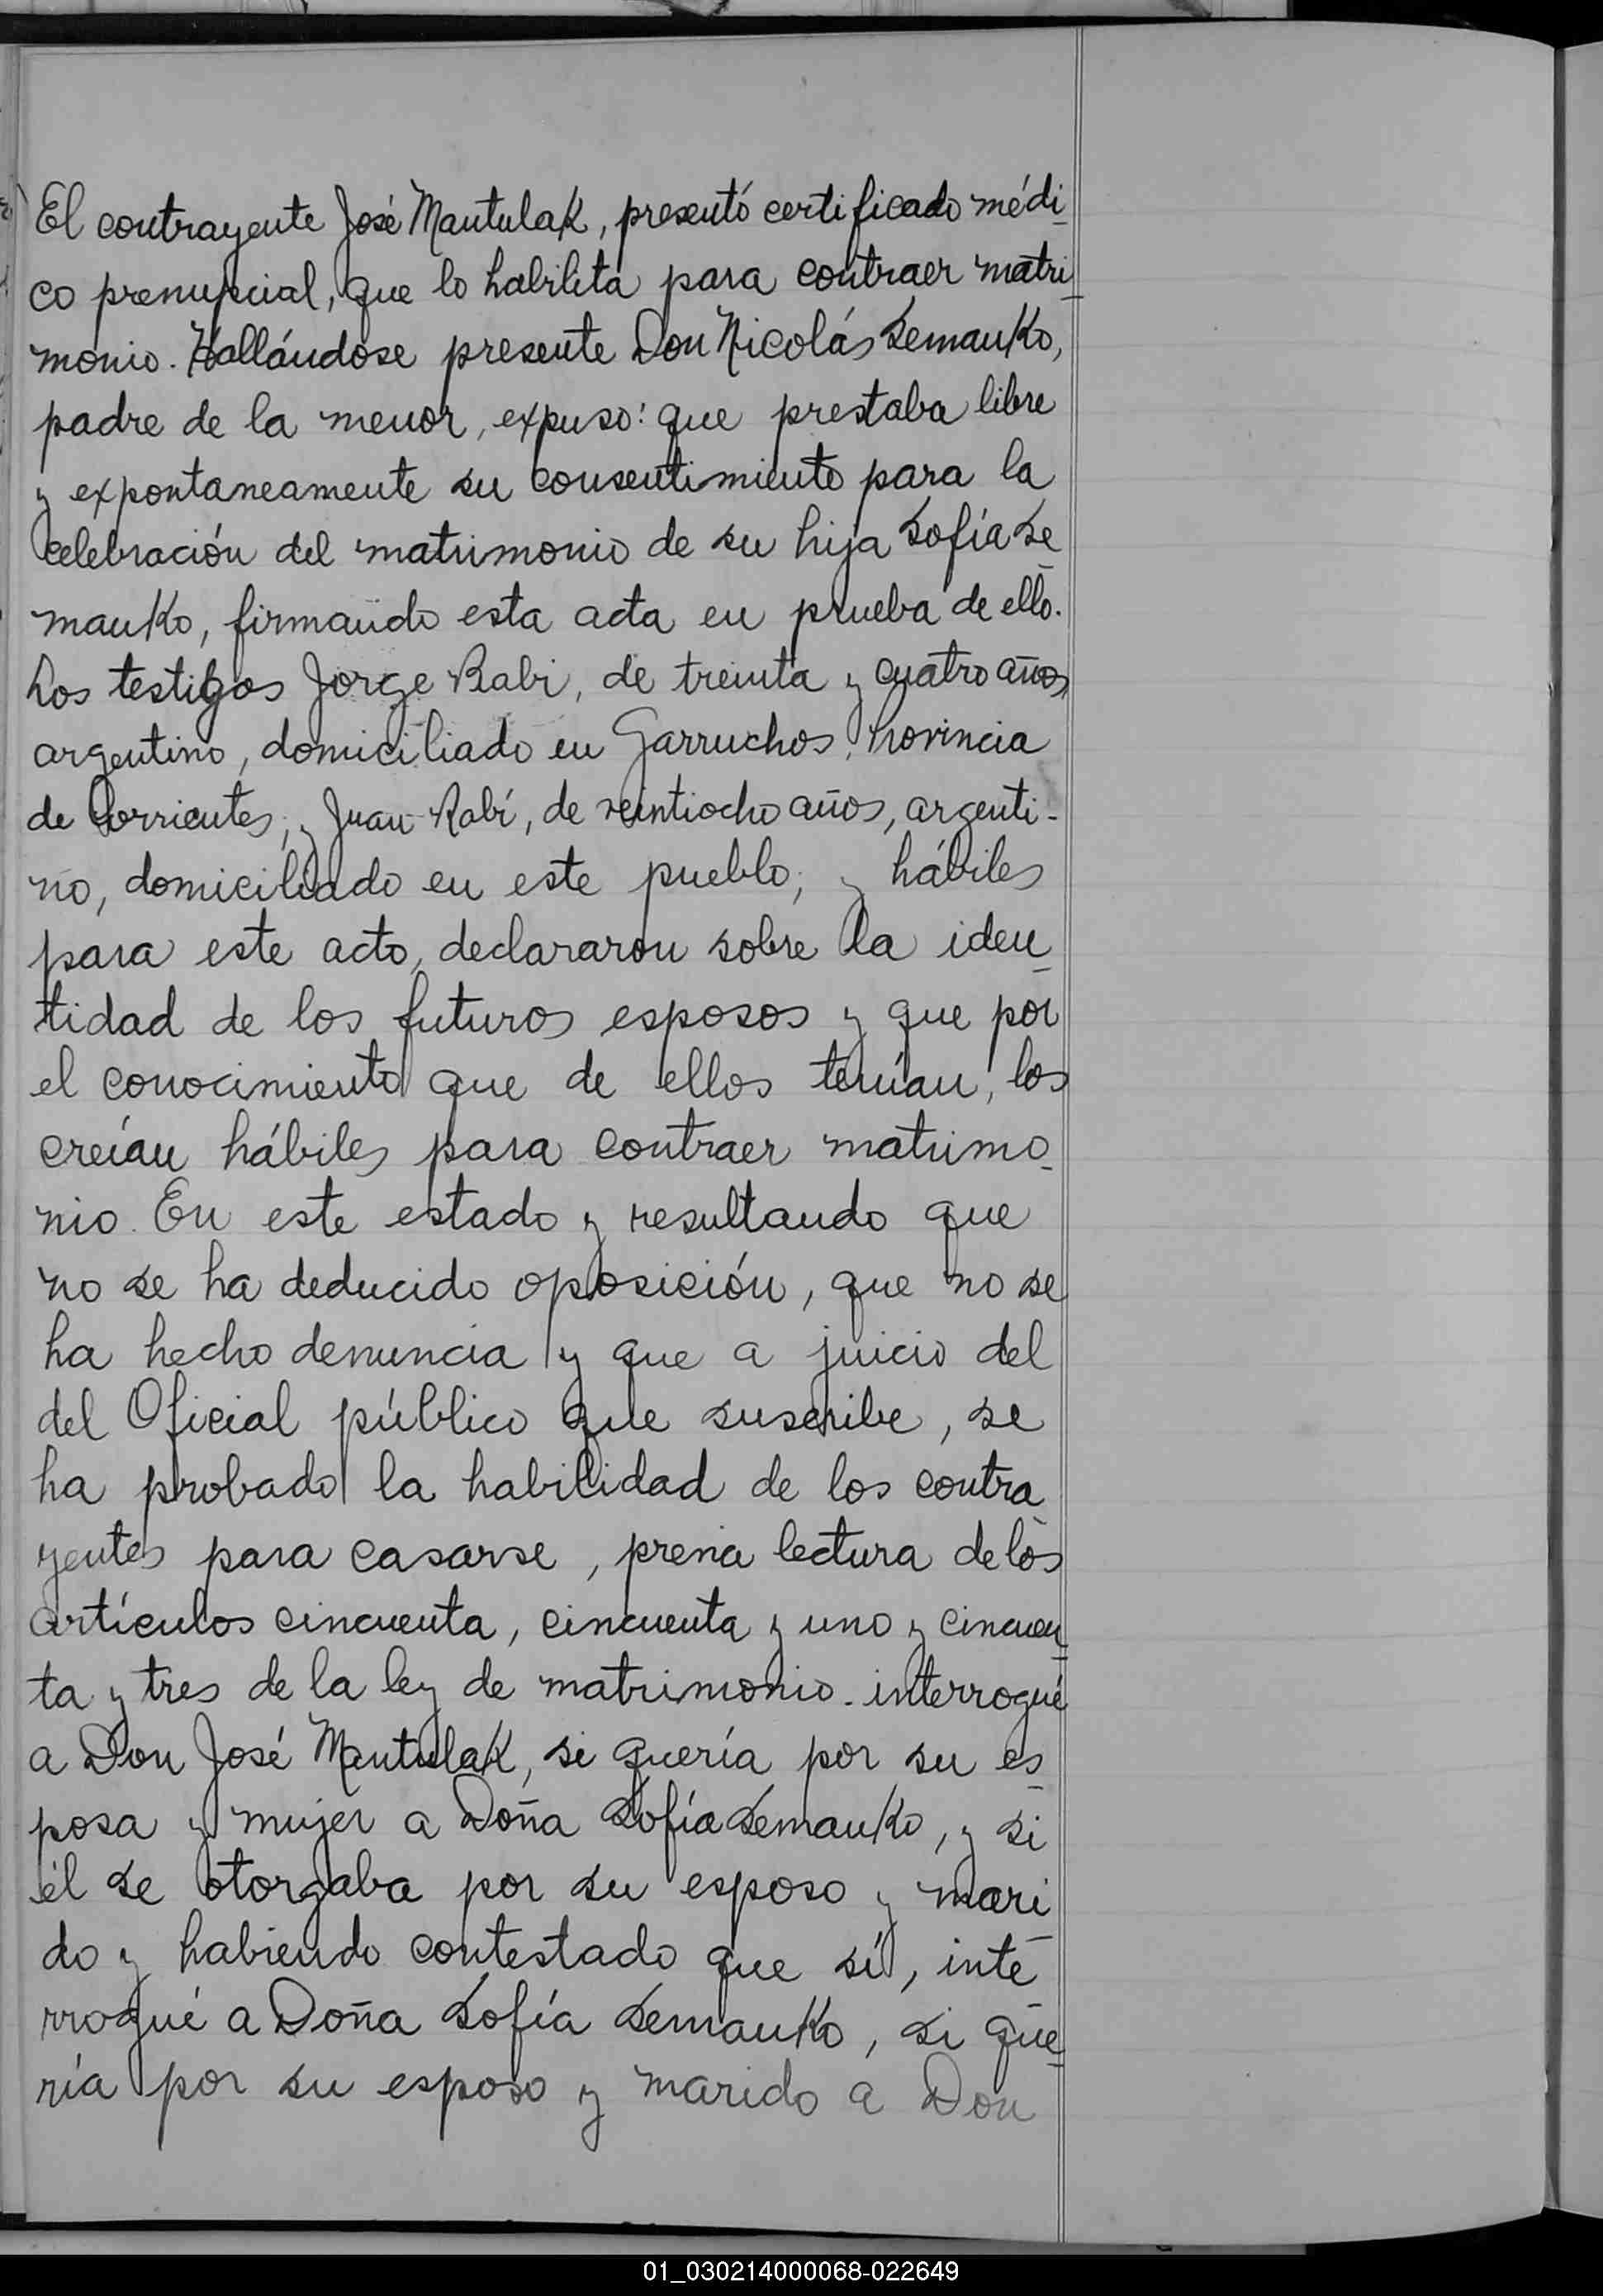 El contrayente José Mantulak, presentó certificado médi-
co prenupcial, que lo habilita para contraer matri-
monio. Hallándose presente Don Nicolás Semanko,
padre de la menor, expuso: que prestaba libre
y expontaneamente su consentimiento para la
celebración del matrimonio de su hija Sofía Se-
manko, firmando esta acta en prueba de ello.
Los testigos Jorge Rabi, de treinta y cuatro años,
argentino, domiciliado en Garruchos, Provincia
de Corrientes; y Juan Rabí, de veintiocho años, argenti-
no, domiciliado en este pueblo; y hábiles
para este acto, declararon sobre la iden-
tidad de los futuros esposos y que por
el conocimiento que de ellos tenían, los
creían hábiles para contraer matrimo-
nio. En este estado y resultando que
no se ha deducido oposición, que no se
ha hecho denuncia y que a juicio del
del Oficial público que suscribe, se
ha probado la habilidad de los contra-
yentes para casarse, previa lectura de los
artículos cincuenta, cincuenta y uno y cincuen-
ta y tres de la ley de matrimonio. interrogué
a Don José Mantulak, si quería por su es-
posa y mujer a Doña Sofía Semanko, y si
él se otorgaba por su esposo y mari-
do y habiendo contestado que sí, inte-
rrogué a Doña Sofía Semanko, si que-
ría por su esposo y marido a Don
01_030214000068-022649